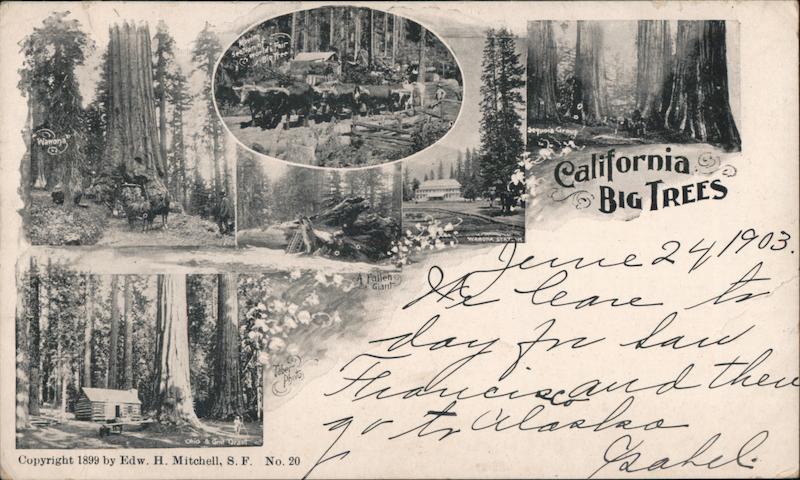 "Wawona"
Sequoia Group
California
BIG TREES
WAWONA STAT'N
A Fallen
Giant
Taber
Photo
Ohio & Gnl Grant
Copyright 1899 by Edw. H. Mitchell, S. F. No. 20
June 24 1903.
We leave to
day for San
Francisco and then
go to Alaska
Isabel.